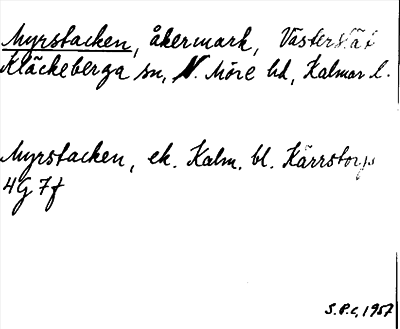 Myrstacken, åkermark, Västerslät
Kläckeberga sn, N. Möre hd, Kalmar l.
Myrstacken, ek. Kalm. bl. Kärrstorp
4G 7f
S.P.C, 1957